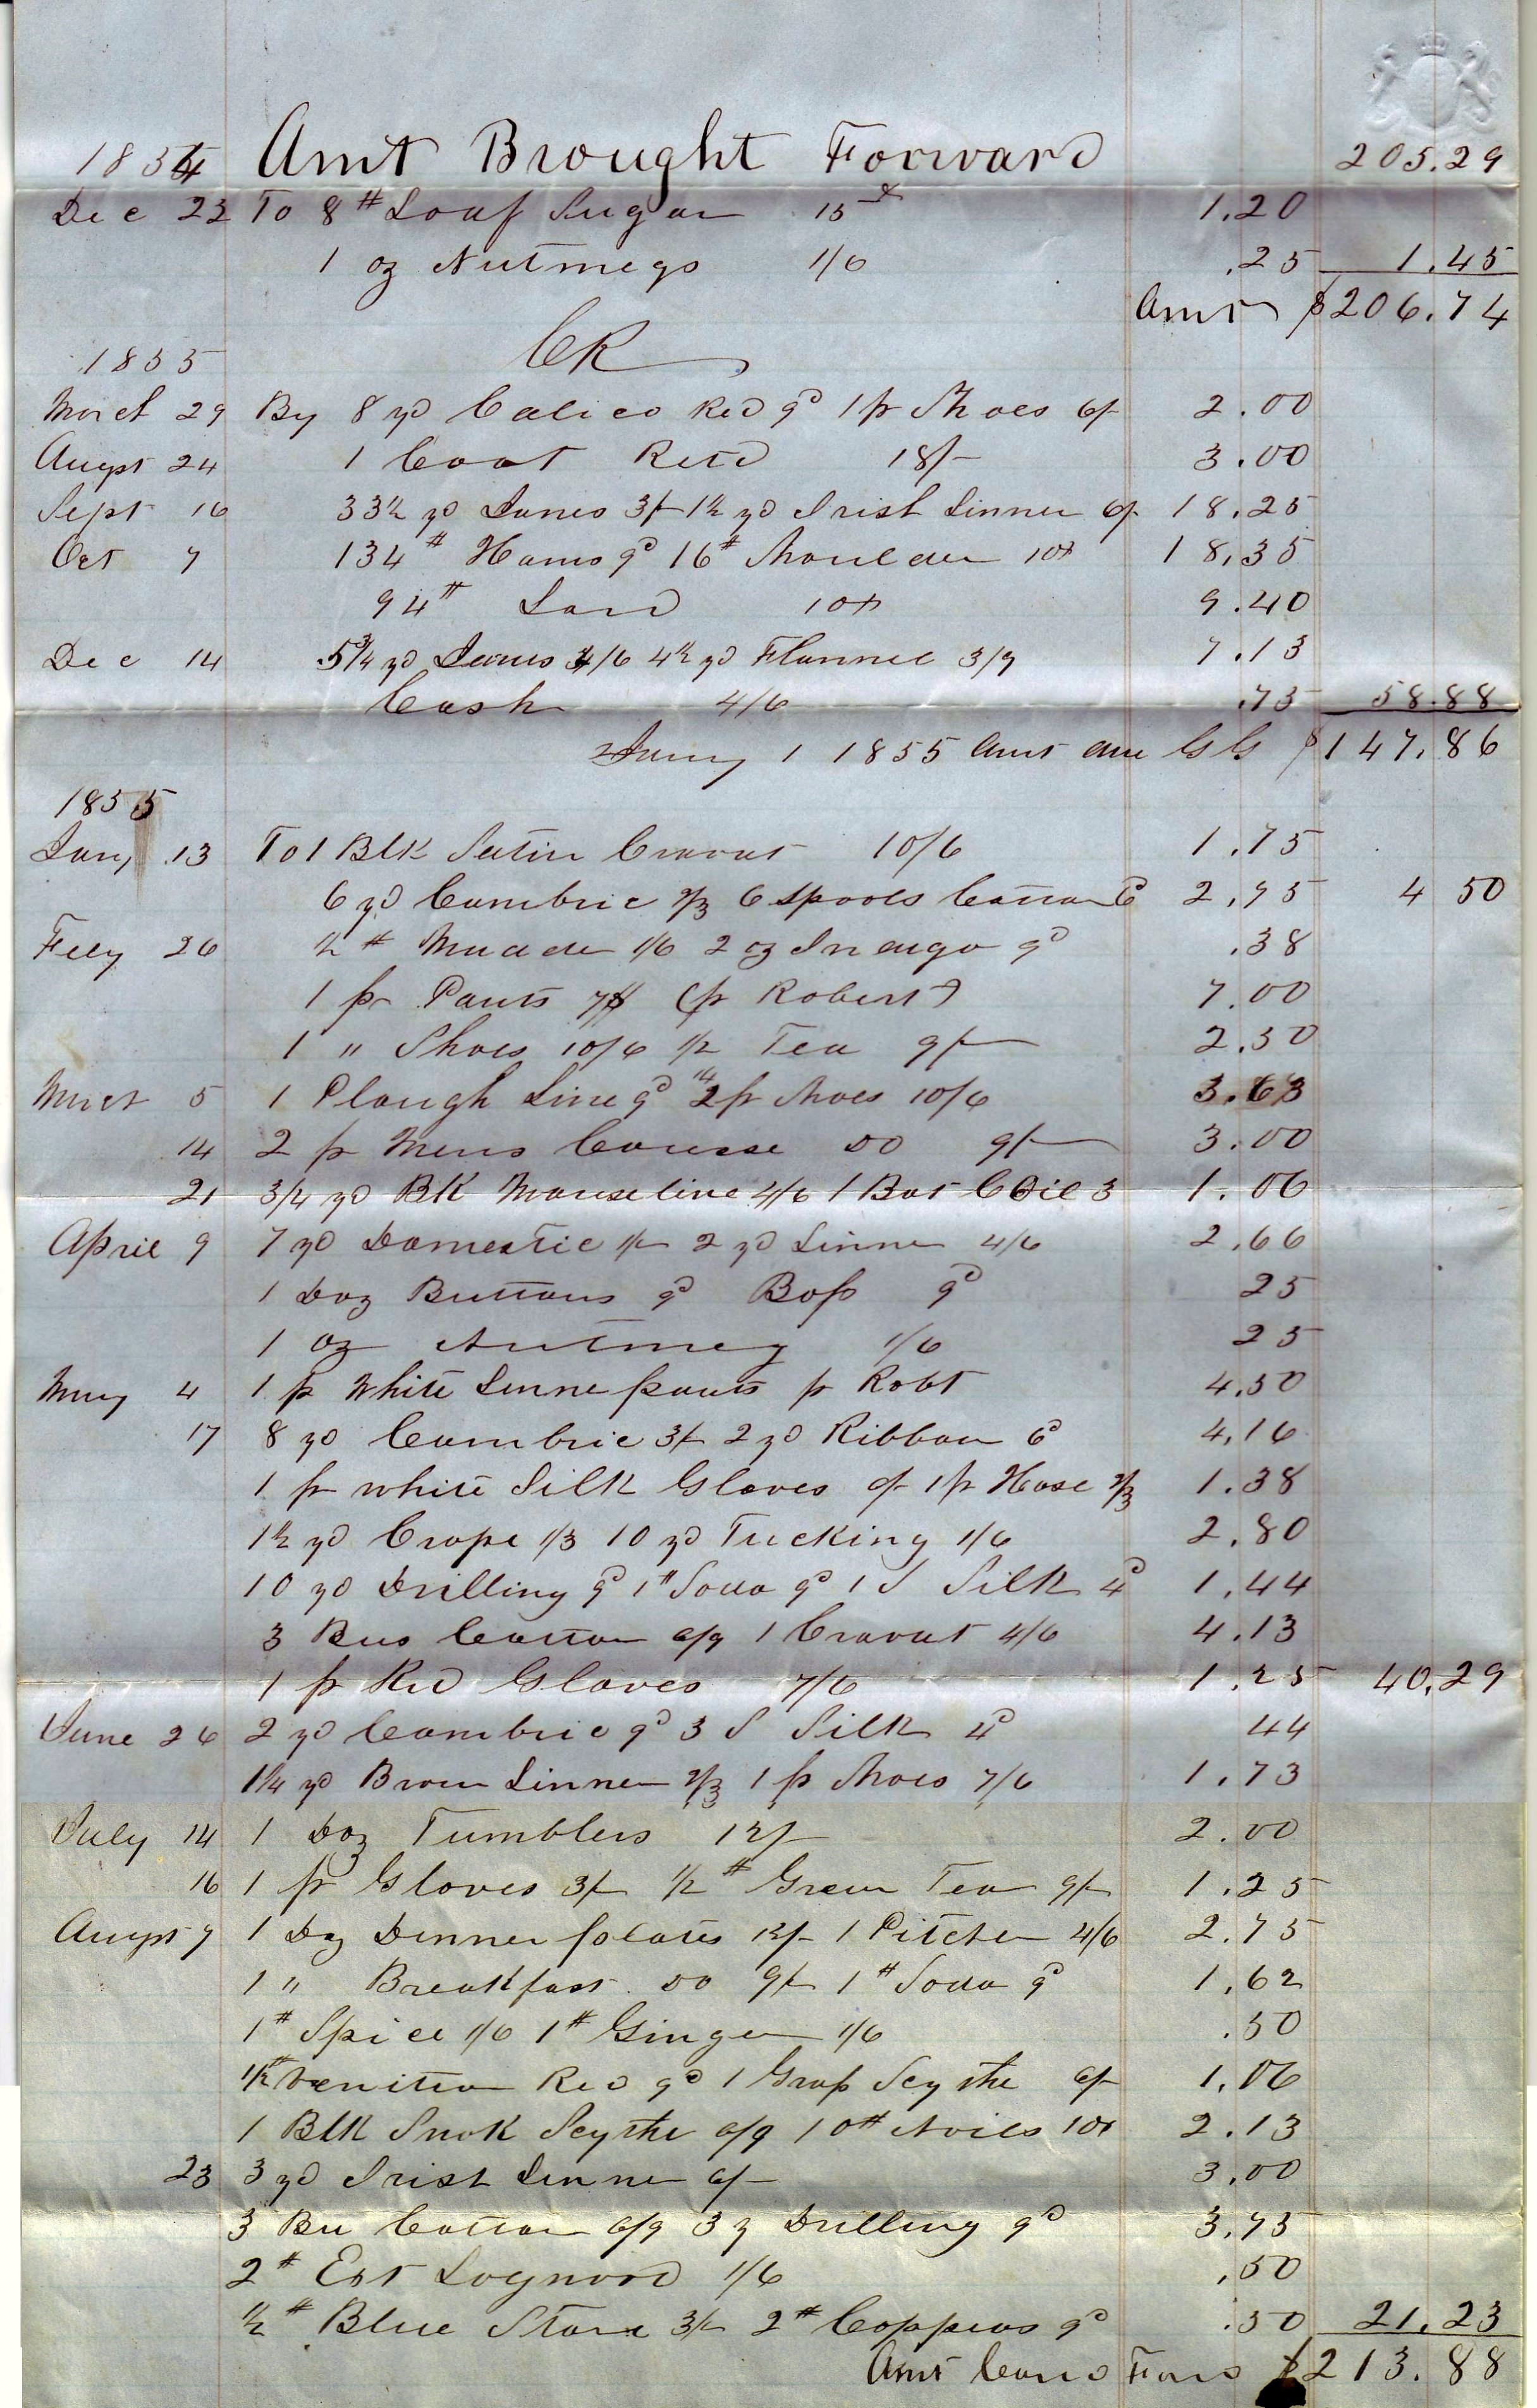 1854 Amt Brought Forward 205.29
Dec 23 To 8# Loaf Sugar 15 1.20
1 oz Nutmegs 1/6 .25 1.45
Amt $206.74
1855 CR
March 29 By 8 yd Calico Red 9d 1 pr Shoes 6/- 2.00
Augst 24 1 Coat Retd 18/- 3.00
Sept 16 33½ yd Janes 3/- 1½ yd Irish Linnen 6/- 18.25
Oct 7 134# Hams 9d 16# Shoulder 10 18.35
94# Lard 10 9.40
Dec 14 5¾ yd Janes 4/6 4½ yd Flannel 3/9 7.13
Cash 4/6 .75 58.88
Jany 1 1855 Amt due GG $147.86
1855
Jany 13 To 1 Blk Satin Cravat 10/6 1.75
6 yd Cambric 2/3 6 Spools Cotton 6d 2.75 4 50
Feby 26 ½# Madder 1/6 2 oz Indigo 9d .38
1 pr Pants 7$ (pr Robert) 7.00
1 " Shoes 10/6 ½ Tea 9/- 2.50
March 5 1 Plough Line 9d 2 pr Shoes 10/6 3.63
14 2 pr Mens Course Do 9/- 3.00
21 3/4 yd Bk Mouseline 4/6 1 Bot C Oil 3 1.06
April 9 7 yd Domestic 1/- 2 yd Linnen 4/6 2.66
1 Doz Buttons 9d Box 9d 25
1 oz Nutmeg 1/6 25
May 4 1 pr White Linne pants pr Robt 4.50
17 8 yd Cambric 3/- 2 yd Ribbon 6d 4.16
1 pr white Silk Gloves 6/- 1 pr Hose 2/3 1.38
1½ yd Crape 1/3 10 yd Tucking 1/6 2.80
10 yd Drilling 9d 1# Soda 9d 1 S Silk 4d 1.44
3 Bus Cotton 6/9 1 Cravat 4/6 4.13
1 pr Kid Gloves 7/6 1.25 40.29
June 26 2 yd Cambric 9d 3 S Silk 4d 44
1¼ yd Brown Linnen 2/3 1 pr Shoes 7/6 1.73
July 14 1 Doz Tumblers 12/- 2.00
16 1 pr Gloves 3/- ½# Green Tea 9/- 1.25
Augst 7 1 Doz Dinner plates 12/- 1 Pitcher 4/6 2.75
1 " Breakfast Do 9/- 1# Soda 9d 1.62
1# Spice 1/6 1# Ginger 1/6 .50
½# Venition Red 9d 1 Grass Scythe 6/- 1.06
1 Blk Snok Scythe 6/9 10# Nails 10 2.13
23 3 yd Irish Linnen 6/- 3.00
3 Bu Cotton 6/9 3 y Drilling 9d 3.75
2# Ext Logwood 1/6 .50
½# Blue Stone 3/- 2# Copperas 9d .50 21.23
Amt Card Ford $213.88